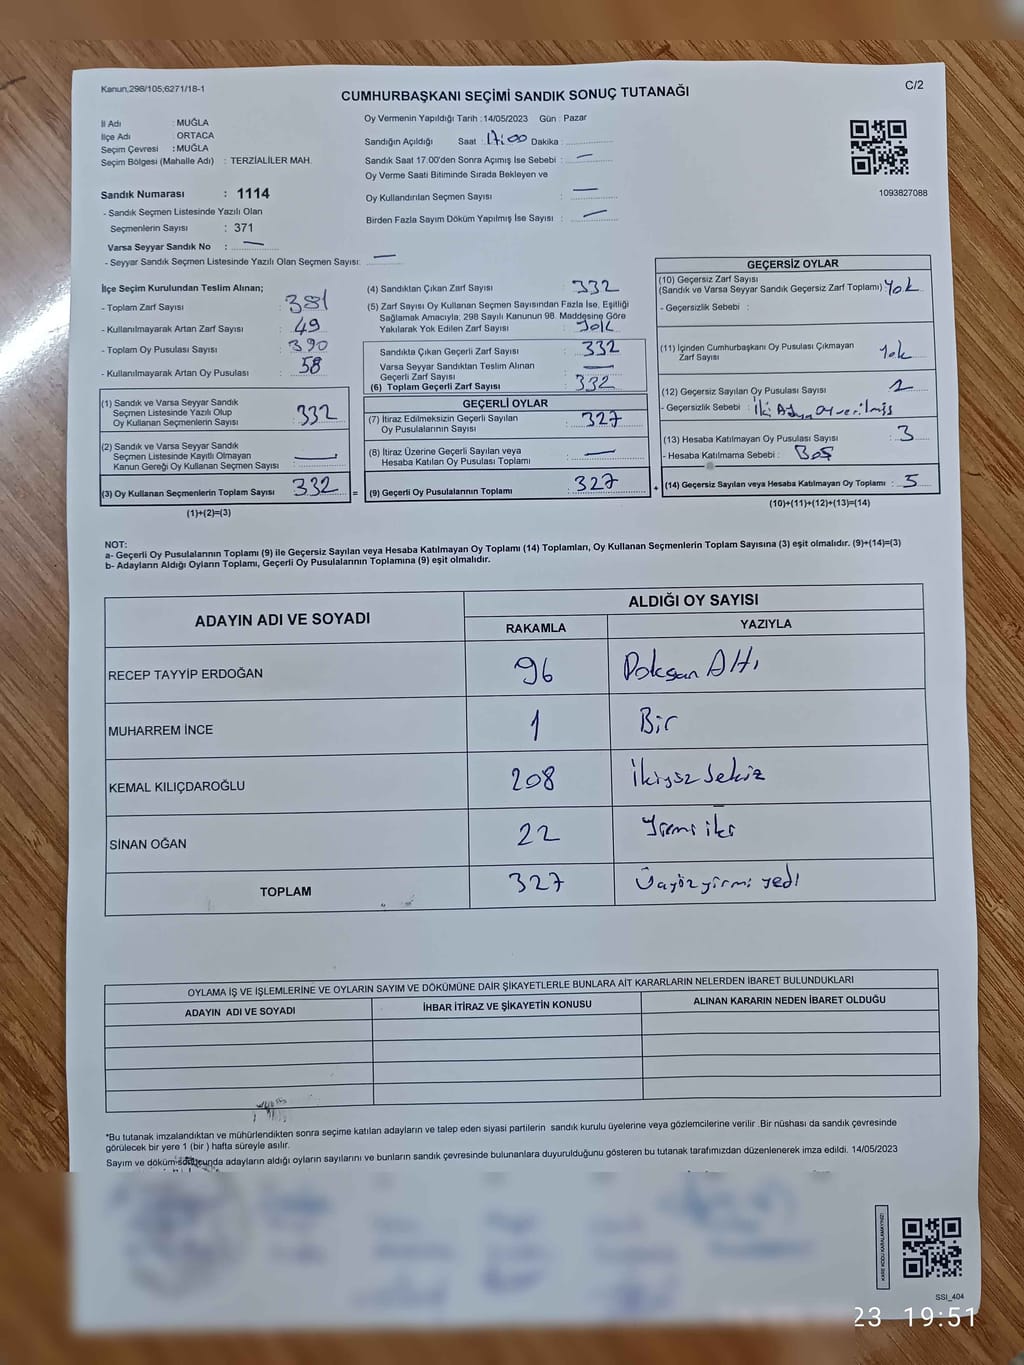 Kanun,298/105;6271/18-1
C/2
CUMHURBAŞKANI SEÇİMİ SANDIK SONUÇ TUTANAĞI
İl Adı : MUĞLA
İlçe Adı : ORTACA
Seçim Çevresi : MUĞLA
Seçim Bölgesi (Mahalle Adı) : TERZİALİLER MAH.
Sandık Numarası : 1114
- Sandık Seçmen Listesinde Yazılı Olan
Seçmenlerin Sayısı : 371
Varsa Seyyar Sandık No : —
- Seyyar Sandık Seçmen Listesinde Yazılı Olan Seçmen Sayısı: —
Oy Vermenin Yapıldığı Tarih :14/05/2023 Gün : Pazar
Sandığın Açıldığı Saat : 17:00 Dakika :
Sandık Saat 17.00'den Sonra Açımış İse Sebebi : —
Oy Verme Saati Bitiminde Sırada Bekleyen ve
Oy Kullandırılan Seçmen Sayısı : —
Birden Fazla Sayım Döküm Yapılmış İse Sayısı : —
1093827088
İlçe Seçim Kurulundan Teslim Alınan;
- Toplam Zarf Sayısı : 381
- Kullanılmayarak Artan Zarf Sayısı : 49
- Toplam Oy Pusulası Sayısı : 390
- Kullanılmayarak Artan Oy Pusulası : 58
(1) Sandık ve Varsa Seyyar Sandık
Seçmen Listesinde Yazılı Olup
Oy Kullanan Seçmenlerin Sayısı : 332
(2) Sandık ve Varsa Seyyar Sandık
Seçmen Listesinde Kayıtlı Olmayan
Kanun Gereği Oy Kullanan Seçmen Sayısı : —
(3) Oy Kullanan Seçmenlerin Toplam Sayısı : 332
(1)+(2)=(3)
(4) Sandıktan Çıkan Zarf Sayısı : 332
(5) Zarf Sayısı Oy Kullanan Seçmen Sayısından Fazla İse, Eşitliği
Sağlamak Amacıyla, 298 Sayılı Kanunun 98. Maddesine Göre
Yakılarak Yok Edilen Zarf Sayısı : Yok
Sandıkta Çıkan Geçerli Zarf Sayısı : 332
Varsa Seyyar Sandıktan Teslim Alınan
Geçerli Zarf Sayısı : —
(6) Toplam Geçerli Zarf Sayısı : 332
GEÇERLİ OYLAR
(7) İtiraz Edilmeksizin Geçerli Sayılan
Oy Pusulalarının Sayısı : 327
(8) İtiraz Üzerine Geçerli Sayılan veya
Hesaba Katılan Oy Pusulası Toplamı : —
= (9) Geçerli Oy Pusulalarının Toplamı : 327
GEÇERSİZ OYLAR
(10) Geçersiz Zarf Sayısı
(Sandık ve Varsa Seyyar Sandık Geçersiz Zarf Toplamı) : Yok
- Geçersizlik Sebebi :
(11) İçinden Cumhurbaşkanı Oy Pusulası Çıkmayan
Zarf Sayısı : Yok
(12) Geçersiz Sayılan Oy Pusulası Sayısı : 2
- Geçersizlik Sebebi : İki Adaya oy verilmiş
(13) Hesaba Katılmayan Oy Pusulası Sayısı : 3
- Hesaba Katılmama Sebebi : Boş
+ (14) Geçersiz Sayılan veya Hesaba Katılmayan Oy Toplamı : 5
(10)+(11)+(12)+(13)=(14)
NOT:
a- Geçerli Oy Pusulalarının Toplamı (9) ile Geçersiz Sayılan veya Hesaba Katılmayan Oy Toplamı (14) Toplamları, Oy Kullanan Seçmenlerin Toplam Sayısına (3) eşit olmalıdır. (9)+(14)=(3)
b- Adayların Aldığı Oyların Toplamı, Geçerli Oy Pusulalarının Toplamına (9) eşit olmalıdır.
ADAYIN ADI VE SOYADI ALDIĞI OY SAYISI
RAKAMLA YAZIYLA
RECEP TAYYİP ERDOĞAN 96 Doksan Altı
MUHARREM İNCE 1 Bir
KEMAL KILIÇDAROĞLU 208 İkiyüz Sekiz
SİNAN OĞAN 22 Yirmi iki
TOPLAM 327 Üçyüz yirmi yedi
OYLAMA İŞ VE İŞLEMLERİNE VE OYLARIN SAYIM VE DÖKÜMÜNE DAİR ŞİKAYETLERLE BUNLARA AİT KARARLARIN NELERDEN İBARET BULUNDUKLARI
ADAYIN ADI VE SOYADI İHBAR İTİRAZ VE ŞİKAYETİN KONUSU ALINAN KARARIN NEDEN İBARET OLDUĞU
*Bu tutanak imzalandıktan ve mühürlendikten sonra seçime katılan adayların ve talep eden siyasi partilerin sandık kurulu üyelerine veya gözlemcilerine verilir .Bir nüshası da sandık çevresinde
görülecek bir yere 1 (bir ) hafta süreyle asılır.
Sayım ve döküm sonucunda adayların aldığı oyların sayılarını ve bunların sandık çevresinde bulunanlara duyurulduğunu gösteren bu tutanak tarafımızdan düzenlenerek imza edildi. 14/05/2023
KARE KODU KARALAMAYINIZ!
SSI_404
23 19:51